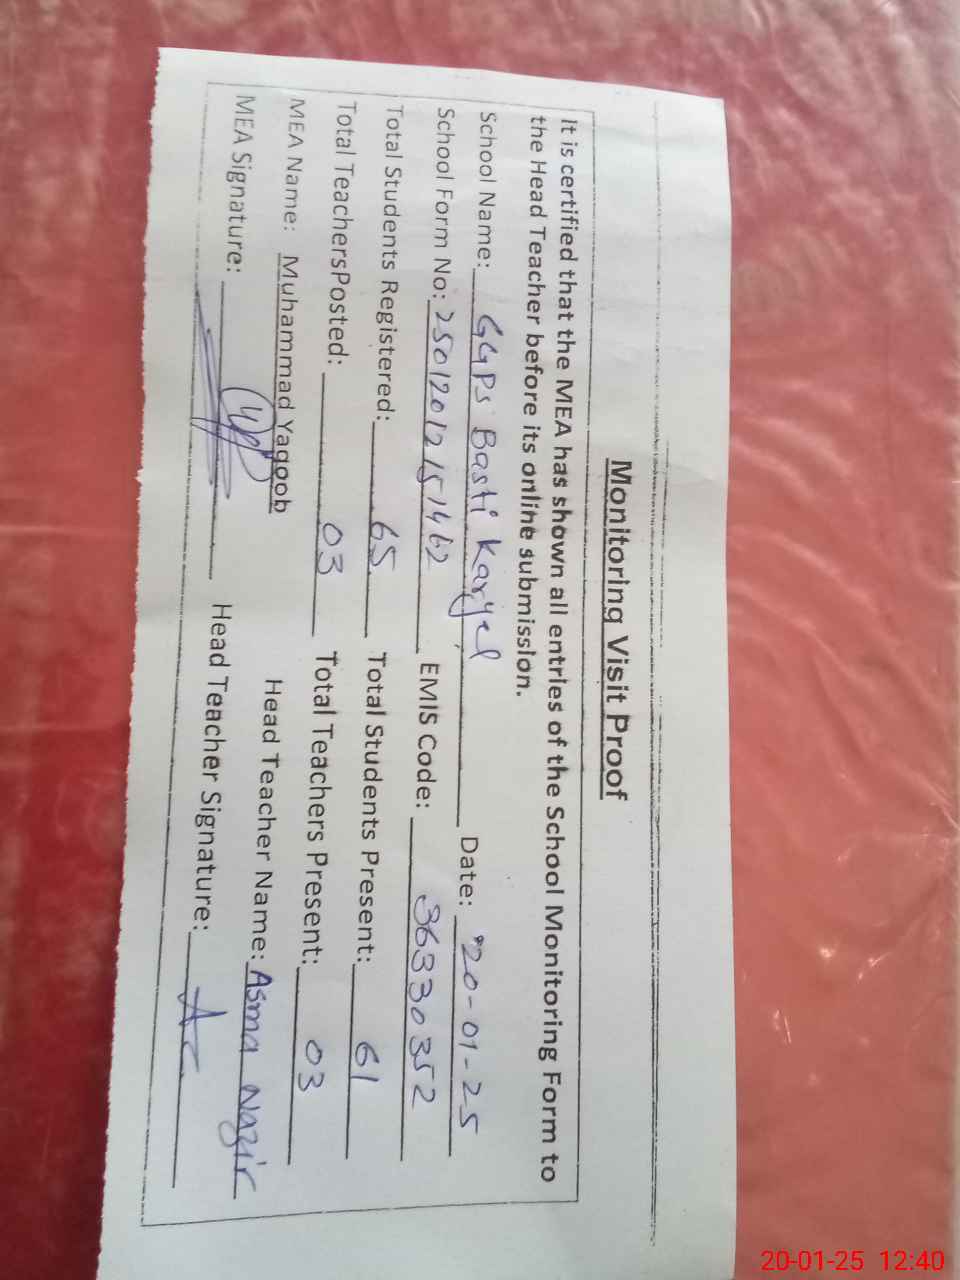 Monitoring Visit Proof
It is certified that the MEA has shown all entries of the School Monitoring Form to
the Head Teacher before its online submission.
School Name: GGPS Basti Karyel Date: 20-01-25
School Form No: 25012012151462 EMIS Code: 36330352
Total Students Registered: 65 Total Students Present: 61
Total TeachersPosted: 03 Total Teachers Present: 03
MEA Name: Muhammad Yaqoob Head Teacher Name: Asma Nazir
MEA Signature: Head Teacher Signature:
20-01-25 12:40